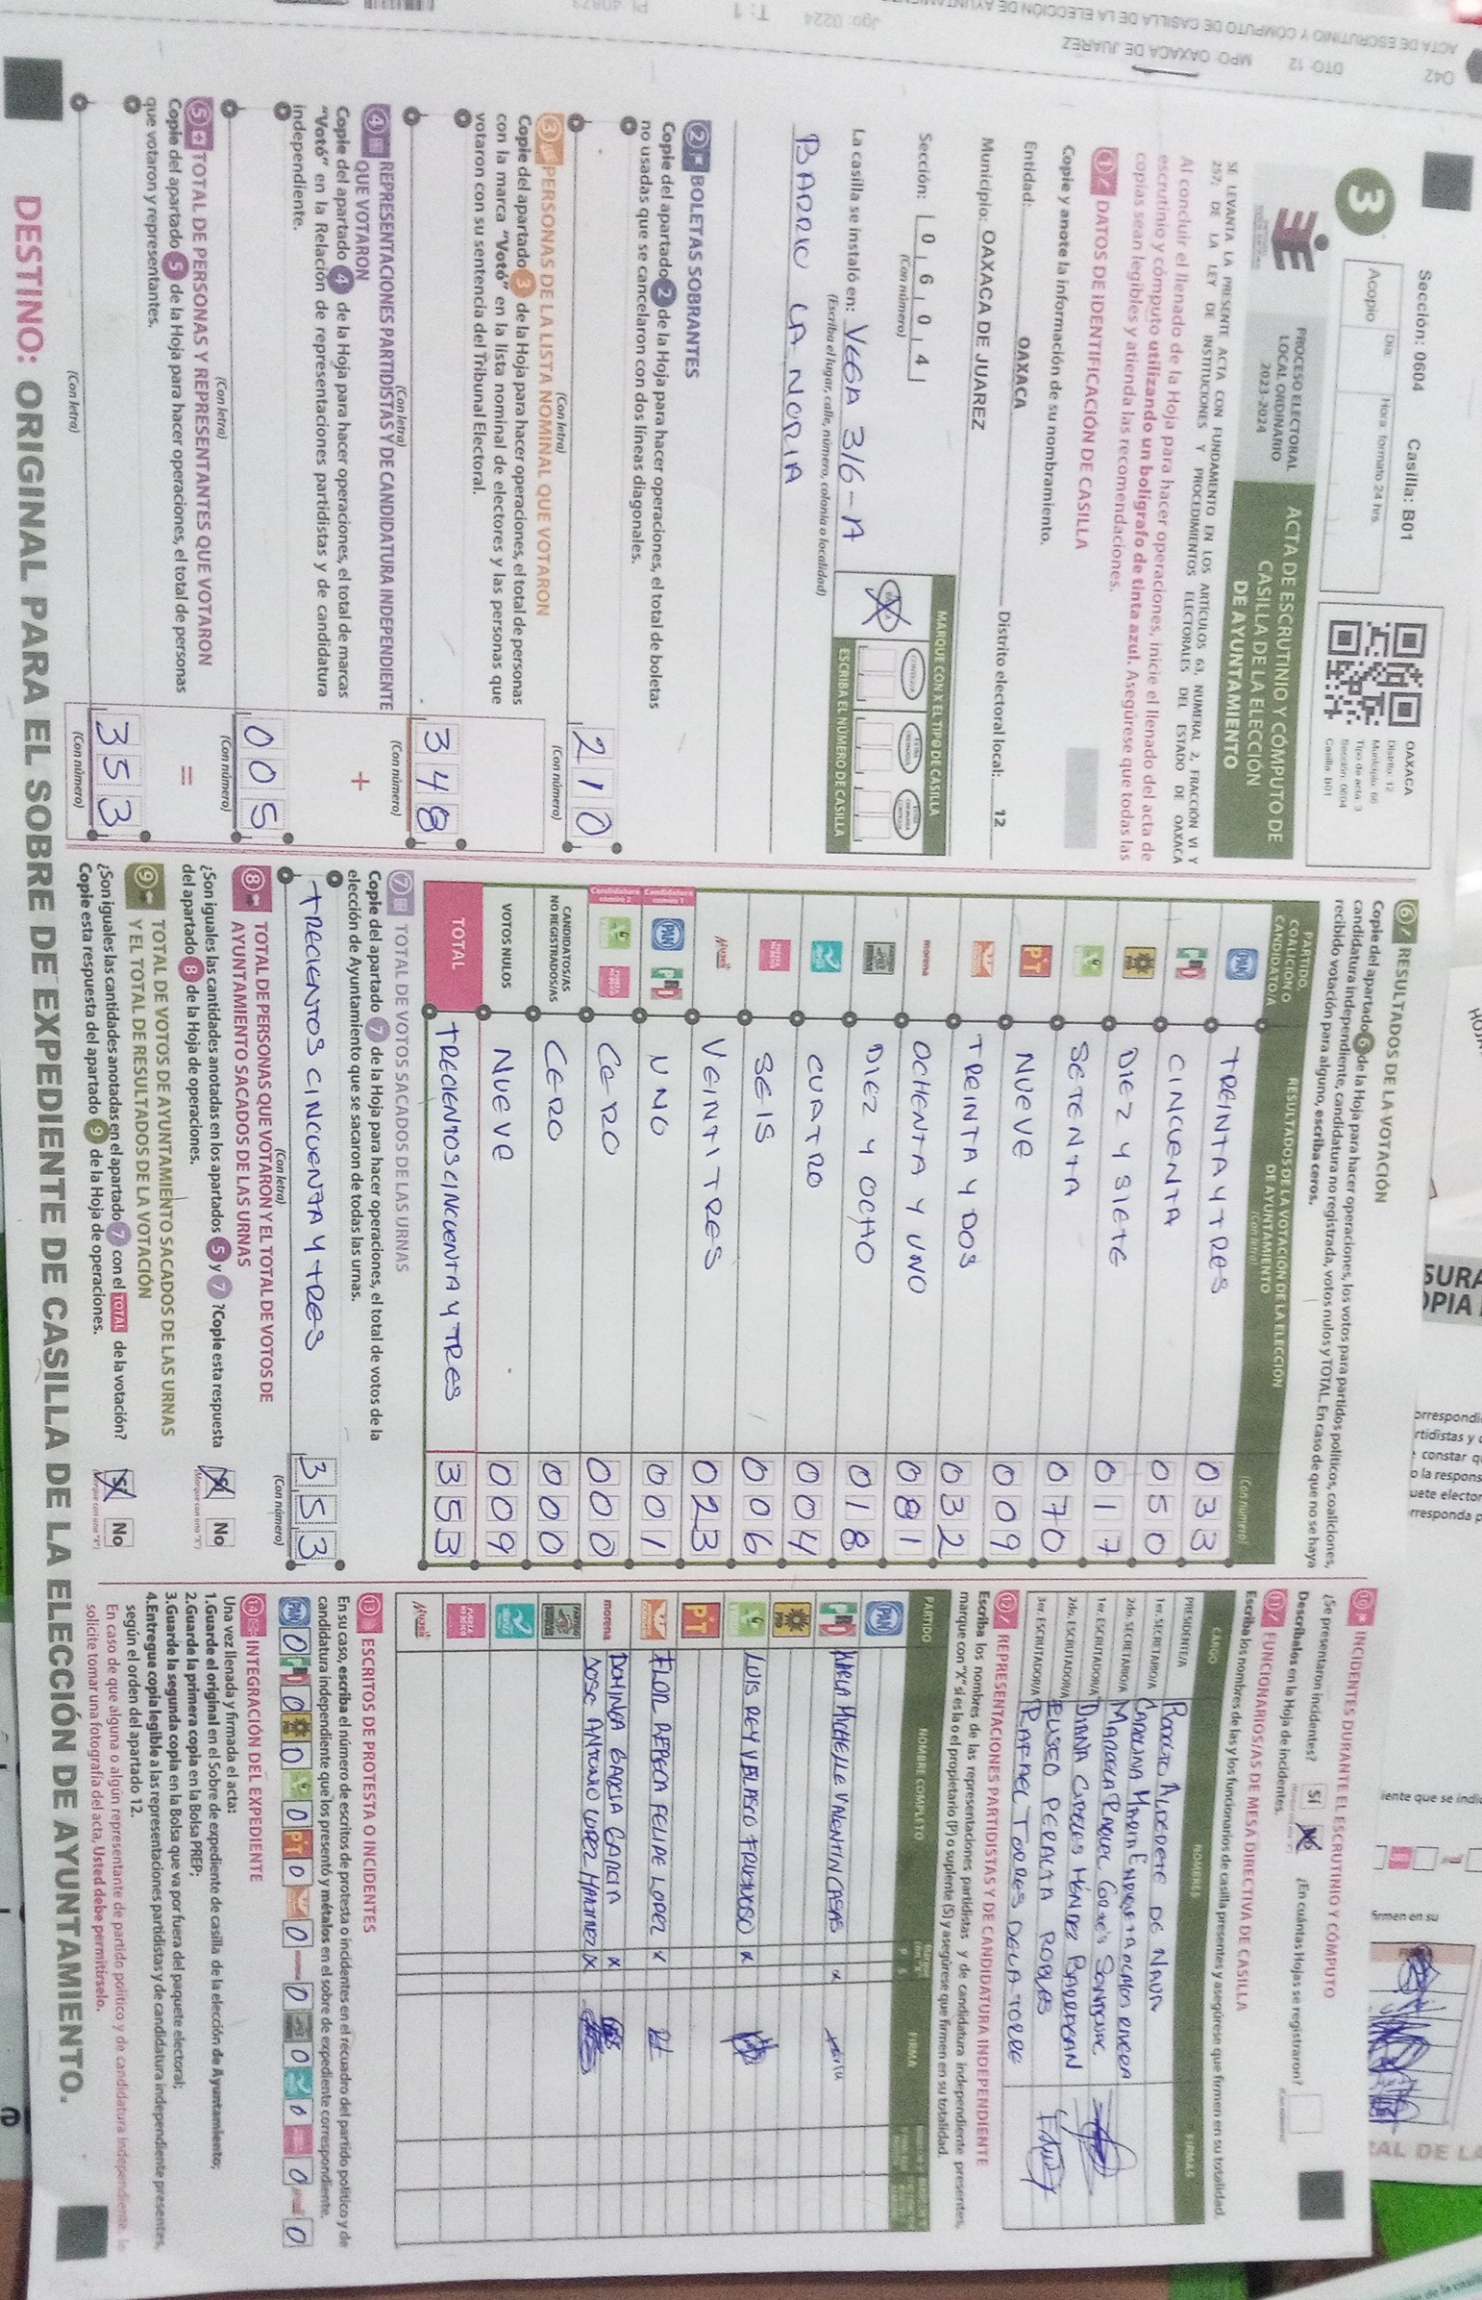 Sección: 0604 Casilla: B01
3
Acopio
Día:
Hora: formato 24 hrs.
OAXACA
Distrito: 12
Municipio: 66
Tipo de acta: 3
Sección: 0604
Casilla: B01
PROCESO ELECTORAL
LOCAL ORDINARIO
2023-2024
ACTA DE ESCRUTINIO Y CÓMPUTO DE
CASILLA DE LA ELECCIÓN
DE AYUNTAMIENTO
SE LEVANTA LA PRESENTE ACTA CON FUNDAMENTO EN LOS ARTÍCULOS 63, NUMERAL 2, FRACCIÓN VI Y
257; DE LA LEY DE INSTITUCIONES Y PROCEDIMIENTOS ELECTORALES DEL ESTADO DE OAXACA
Al concluir el llenado de la Hoja para hacer operaciones, inicie el llenado del acta de
escrutinio y cómputo utilizando un bolígrafo de tinta azul. Asegúrese que todas las
copias sean legibles y atienda las recomendaciones.
1 DATOS DE IDENTIFICACIÓN DE CASILLA
Copie y anote la información de su nombramiento.
Entidad: OAXACA Distrito electoral local: 12
Municipio: OAXACA DE JUAREZ
Sección: 0 6 0 4
(Con número)
MARQUE CON X EL TIPO DE CASILLA
ESCRIBA EL NÚMERO DE CASILLA
La casilla se instaló en: VEGA 316-A
(Escriba el lugar, calle, número, colonia o localidad)
BARRIO LA NORIA
2 BOLETAS SOBRANTES
Copie del apartado 2 de la Hoja para hacer operaciones, el total de boletas
no usadas que se cancelaron con dos líneas diagonales.
210
(Con letra) (Con número)
3 PERSONAS DE LA LISTA NOMINAL QUE VOTARON
Copie del apartado 3 de la Hoja para hacer operaciones, el total de personas
con la marca "Votó" en la lista nominal de electores y las personas que
votaron con su sentencia del Tribunal Electoral.
348
(Con letra) (Con número)
4 REPRESENTACIONES PARTIDISTAS Y DE CANDIDATURA INDEPENDIENTE
QUE VOTARON
+
Copie del apartado 4 de la Hoja para hacer operaciones, el total de marcas
"Votó" en la Relación de representaciones partidistas y de candidatura
independiente.
005
(Con letra) (Con número)
5 TOTAL DE PERSONAS Y REPRESENTANTES QUE VOTARON
=
Copie del apartado 5 de la Hoja para hacer operaciones, el total de personas
que votaron y representantes.
353
(Con letra) (Con número)
6 RESULTADOS DE LA VOTACIÓN
Copie del apartado 6 de la Hoja para hacer operaciones, los votos para partidos políticos, coaliciones,
candidatura independiente, candidatura no registrada, votos nulos y TOTAL. En caso de que no se haya
recibido votación para alguno, escriba ceros.
PARTIDO,
COALICIÓN O
CANDIDATO/A
RESULTADOS DE LA VOTACIÓN DE LA ELECCIÓN
DE AYUNTAMIENTO
(Con letra)
(Con número)
PAN TREINTA Y TRES 033
PRI CINCUENTA 050
PRD DIEZ Y SIETE 017
SETENTA 070
PT NUEVE 009
TREINTA Y DOS 032
morena OCHENTA Y UNO 081
DIEZ Y OCHO 018
CUATRO 004
SEIS 006
VEINTITRES 023
Candidatura común 1 PAN PRI UNO 001
Candidatura común 2 CERO 000
CANDIDATOS/AS
NO REGISTRADOS/AS CERO 000
VOTOS NULOS NUEVE 009
TOTAL TRECIENTOS CINCUENTA Y TRES 353
7 TOTAL DE VOTOS SACADOS DE LAS URNAS
Copie del apartado 7 de la Hoja para hacer operaciones, el total de votos de la
elección de Ayuntamiento que se sacaron de todas las urnas.
TRECIENTOS CINCUENTA Y TRES 353
(Con letra) (Con número)
8 TOTAL DE PERSONAS QUE VOTARON Y EL TOTAL DE VOTOS DE
AYUNTAMIENTO SACADOS DE LAS URNAS
¿Son iguales las cantidades anotadas en los apartados 5 y 7 ?Copie esta respuesta
del apartado 8 de la Hoja de operaciones.
Sí No
9 TOTAL DE VOTOS DE AYUNTAMIENTO SACADOS DE LAS URNAS
Y EL TOTAL DE RESULTADOS DE LA VOTACIÓN
¿Son iguales las cantidades anotadas en el apartado 7 con el TOTAL de la votación?
Copie esta respuesta del apartado 9 de la Hoja de operaciones.
Sí No
10 INCIDENTES DURANTE EL ESCRUTINIO Y CÓMPUTO
¿Se presentaron incidentes? Sí No ¿En cuántas Hojas se registraron?
Descríbalos en la Hoja de incidentes.
11 FUNCIONARIOS/AS DE MESA DIRECTIVA DE CASILLA
Escriba los nombres de las y los funcionarios de casilla presentes y asegúrese que firmen en su totalidad.
CARGO NOMBRES FIRMAS
PRESIDENTE/A
1er. SECRETARIO/A
2do. SECRETARIO/A
1er. ESCRUTADOR/A
2do. ESCRUTADOR/A
3er. ESCRUTADOR/A
12 REPRESENTACIONES PARTIDISTAS Y DE CANDIDATURA INDEPENDIENTE
Escriba los nombres de las representaciones partidistas y de candidatura independiente presentes,
marque con "X" si es la o el propietario (P) o suplente (S) y asegúrese que firmen en su totalidad.
PARTIDO NOMBRE COMPLETO FIRMA
PAN
PRI KARLA MICHELLE VALENTIN CASAS x
PRD
LUIS REY VELASCO FRUCTUOSO x
PT
FLOR REBECA FELIPE LOPEZ x
morena DOMINGA GARCIA GARCIA x
JOSE ANTONIO LOPEZ MARTINEZ x
13 ESCRITOS DE PROTESTA O INCIDENTES
En su caso, escriba el número de escritos de protesta o incidentes en el recuadro del partido político y de
candidatura independiente que los presentó y métalos en el sobre de expediente correspondiente.
PAN 0 PRI 0 PRD 0 0 PT 0 0 0 0 0 0 0
14 INTEGRACIÓN DEL EXPEDIENTE
Una vez llenada y firmada el acta:
1.Guarde el original en el Sobre de expediente de casilla de la elección de Ayuntamiento;
2.Guarde la primera copia en la Bolsa PREP;
3.Guarde la segunda copia en la Bolsa que va por fuera del paquete electoral;
4.Entregue copia legible a las representaciones partidistas y de candidatura independiente presentes,
según el orden del apartado 12.
En caso de que alguna o algún representante de partido político y de candidatura independiente, le
solicite tomar una fotografía del acta, Usted debe permitírselo.
DESTINO: ORIGINAL PARA EL SOBRE DE EXPEDIENTE DE CASILLA DE LA ELECCIÓN DE AYUNTAMIENTO.
042 DTO 12 MPO: OAXACA DE JUAREZ